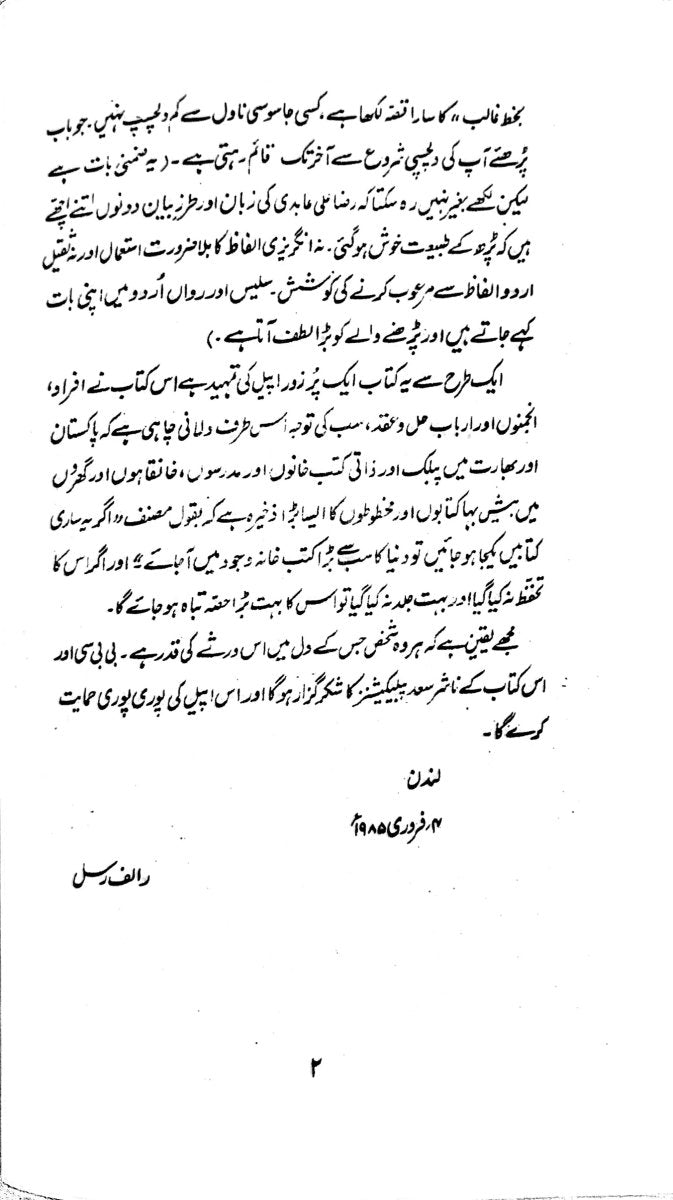 بخط غالب" کا سارا قصّہ لکھا ہے، کسی جاسوسی ناول سے کم دلچسپ نہیں۔ جو باب
پڑھئے آپ کی دلچسپی شروع سے آخر تک قائم رہتی ہے۔ (یہ ضمنی بات ہے
لیکن لکھے بغیر نہیں رہ سکتا کہ رضا علی عابدی کی زبان اور طرزِ بیان دونوں اتنے اچھے
ہیں کہ پڑھ کے طبیعت خوش ہو گئی۔ نہ انگریزی الفاظ کا بلا ضرورت استعمال اور نہ ثقیل
اردو الفاظ سے مرعوب کرنے کی کوشش۔ سلیس اور رواں اُردو میں اپنی بات
کہے جاتے ہیں اور پڑھنے والے کو بڑا لطف آتا ہے۔)
ایک طرح سے یہ کتاب ایک پُر زور اپیل کی تمہید ہے اس کتاب نے افراد،
انجمنوں اور ارباب حل و عقد، سب کی توجہ اس طرف دلانی چاہی ہے کہ پاکستان
اور بھارت میں پبلک اور ذاتی کتب خانوں اور مدرسوں، خانقاہوں اور گھروں
میں بیش بہا کتابوں اور مخطوطوں کا ایسا بڑا ذخیرہ ہے کہ بقول مصنف "اگر یہ ساری
کتابیں یکجا ہو جائیں تو دنیا کا سب سے بڑا کتب خانہ وجود میں آ جائے" اور اگر اس کا
تحفّظ نہ کیا گیا اور بہت جلد نہ کیا گیا تو اس کا بہت بڑا حصّہ تباہ ہو جائے گا۔
مجھے یقین ہے کہ ہر وہ شخص جس کے دل میں اس ورثے کی قدر ہے۔ بی بی سی اور
اس کتاب کے ناشر سعد پبلیکیشنز کا شکر گزار ہو گا اور اس اپیل کی پوری پوری حمایت
کرے گا۔
لندن
۴؍ فروری ۱۹۸۵ء
رالف رسل
۲